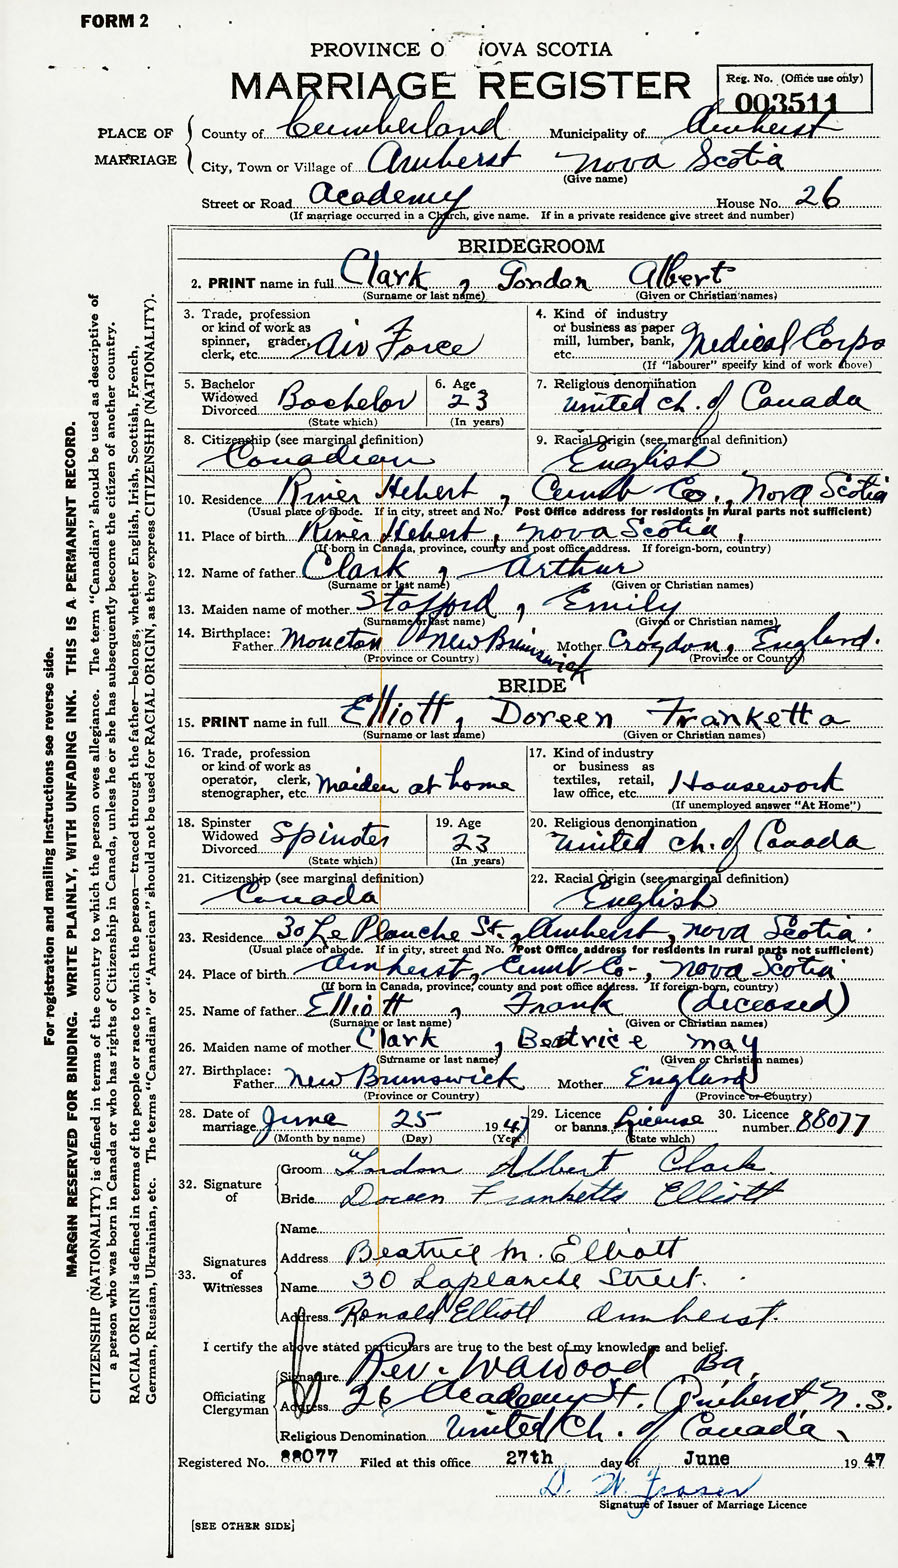 FORM 2
PROVINCE O NOVA SCOTIA
MARRIAGE REGISTER
Reg. No. (Office use only)
003511
PLACE OF MARRIAGE
County of Cumberland Municipality of Amherst
City, Town or Village of Amherst Nova Scotia
(Give name)
Street or Road Academy House No. 26
(If marriage occurred in a Church, give name. If in a private residence give street and number)
BRIDEGROOM
2. PRINT name in full Clark, Gordon Albert
(Surname or last name) (Given or Christian names)
3. Trade, profession or kind of work as spinner, grader, clerk, etc. Air Force
4. Kind of industry or business as paper mill, lumber, bank, etc. Medical Corps
(If "labourer" specify kind of work above)
5. Bachelor Widowed Divorced Bachelor
(State which)
6. Age 23
(In years)
7. Religious denomination United Ch. of Canada
8. Citizenship (see marginal definition) Canadian
9. Racial Origin (see marginal definition) English
10. Residence River Hebert, Cumb Co., Nova Scotia
(Usual place of abode. If in city, street and No. Post Office address for residents in rural parts not sufficient)
11. Place of birth River Hebert, Nova Scotia,
(If born in Canada, province, county and post office address. If foreign-born, country)
12. Name of father Clark, Arthur
(Surname or last name) (Given or Christian names)
13. Maiden name of mother Stafford, Emily
(Surname or last name) (Given or Christian names)
14. Birthplace: Father Moncton New Brunswick Mother Croydon, England.
(Province or Country) (Province or Country)
BRIDE
15. PRINT name in full Elliott, Doreen Franketta
(Surname or last name) (Given or Christian names)
16. Trade, profession or kind of work as operator, clerk, stenographer, etc. Maiden at home
17. Kind of industry or business as textiles, retail, law office, etc. Housework
(If unemployed answer "At Home")
18. Spinster Widowed Divorced Spinster
(State which)
19. Age 23
(In years)
20. Religious denomination United ch. of Canada
21. Citizenship (see marginal definition) Canada
22. Racial Origin (see marginal definition) English
23. Residence 30 La Planche St., Amherst, Nova Scotia.
(Usual place of abode. If in city, street and No. Post Office address for residents in rural parts not sufficient)
24. Place of birth Amherst, Cumb Co., Nova Scotia
(If born in Canada, province, county and post office address. If foreign-born, country)
25. Name of father Elliott, Frank (deceased)
(Surname or last name) (Given or Christian names)
26. Maiden name of mother Clark, Beatrice May
(Surname or last name) (Given or Christian names)
27. Birthplace: Father New Brunswick Mother England
(Province or Country) (Province or Country)
28. Date of marriage June 25 1947
(Month by name) (Day) (Year)
29. Licence or banns License
(State which)
30. Licence number 88077
32. Signature of
Groom Gordon Albert Clark
Bride Doreen Franketta Elliott
33. Signatures of Witnesses
Name
Address Beatrice M. Elliott
Name 30 Laplanche Street.
Address Ronald Elliott Amherst.
I certify the above stated particulars are true to the best of my knowledge and belief.
Officiating Clergyman
Signature Rev. Ba.
Address 26 Academy St. Amherst N.S.
Religious Denomination United Ch. of Canada
Registered No. 88077 Filed at this office 27th day of June 1947
D. W. Fraser
Signature of Issuer of Marriage Licence
[SEE OTHER SIDE]
For registration and mailing instructions see reverse side.
MARGIN RESERVED FOR BINDING. WRITE PLAINLY, WITH UNFADING INK. THIS IS A PERMANENT RECORD.
CITIZENSHIP (NATIONALITY) is defined in terms of the country to which the person owes allegiance. The term "Canadian" should be used as descriptive of
a person who was born in Canada or who has rights of Citizenship in Canada, unless he or she has subsequently become the citizen of another country.
RACIAL ORIGIN is defined in terms of the people or race to which the person—traced through the father—belongs, whether English, Irish, Scottish, French,
German, Russian, Ukrainian, etc. The terms "Canadian" or "American" should not be used for RACIAL ORIGIN, as they express CITIZENSHIP (NATIONALITY).